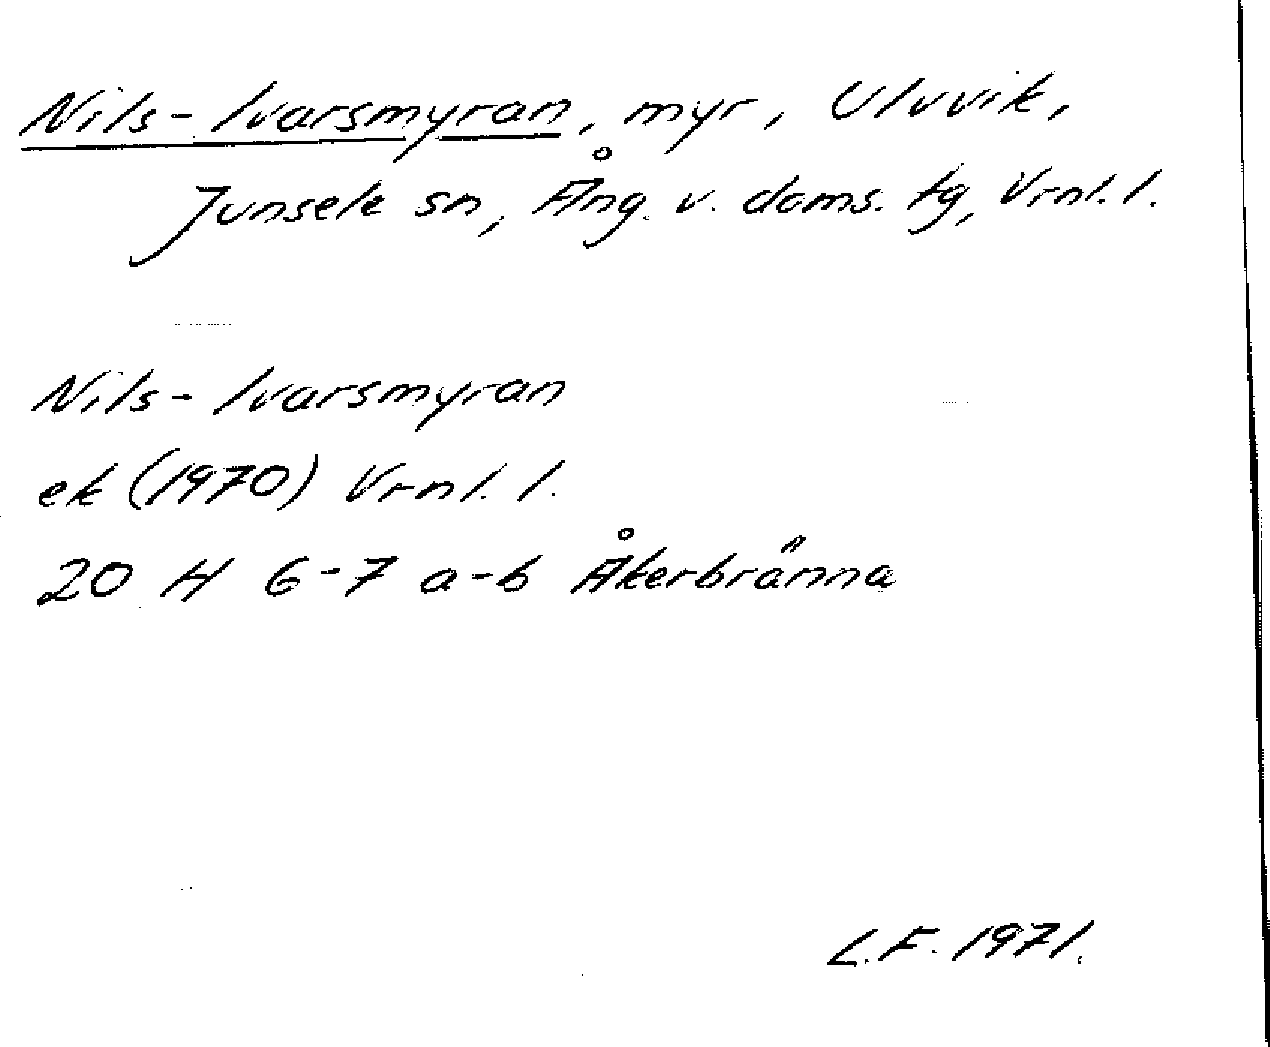 Nils-Ivarsmyran, myr, Ulvvik,
Junsele sn, Ång. v. doms. tg, Vrnl. l.
Nils-Ivarsmyran
ek (1970) Vrnl. l.
20 H 6-7 a-b Åkerbränna
L.F. 1971.